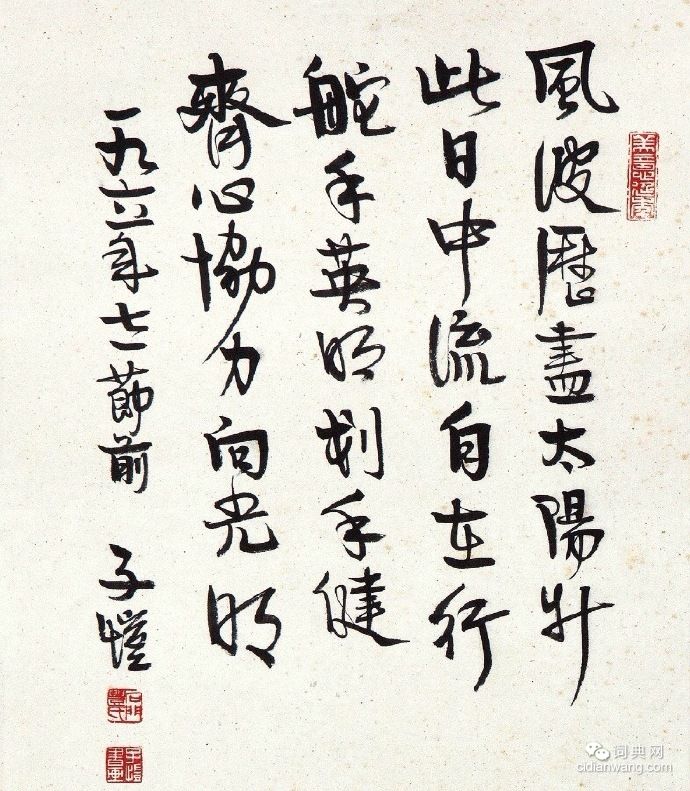 美意延年
風波歷盡太陽升
此日中流自在行
舵手英明划手健
齊心協力向光明
一九六一年七一節前 子愷
石門豐氏
子愷書畫
词典网
cidianwang.com